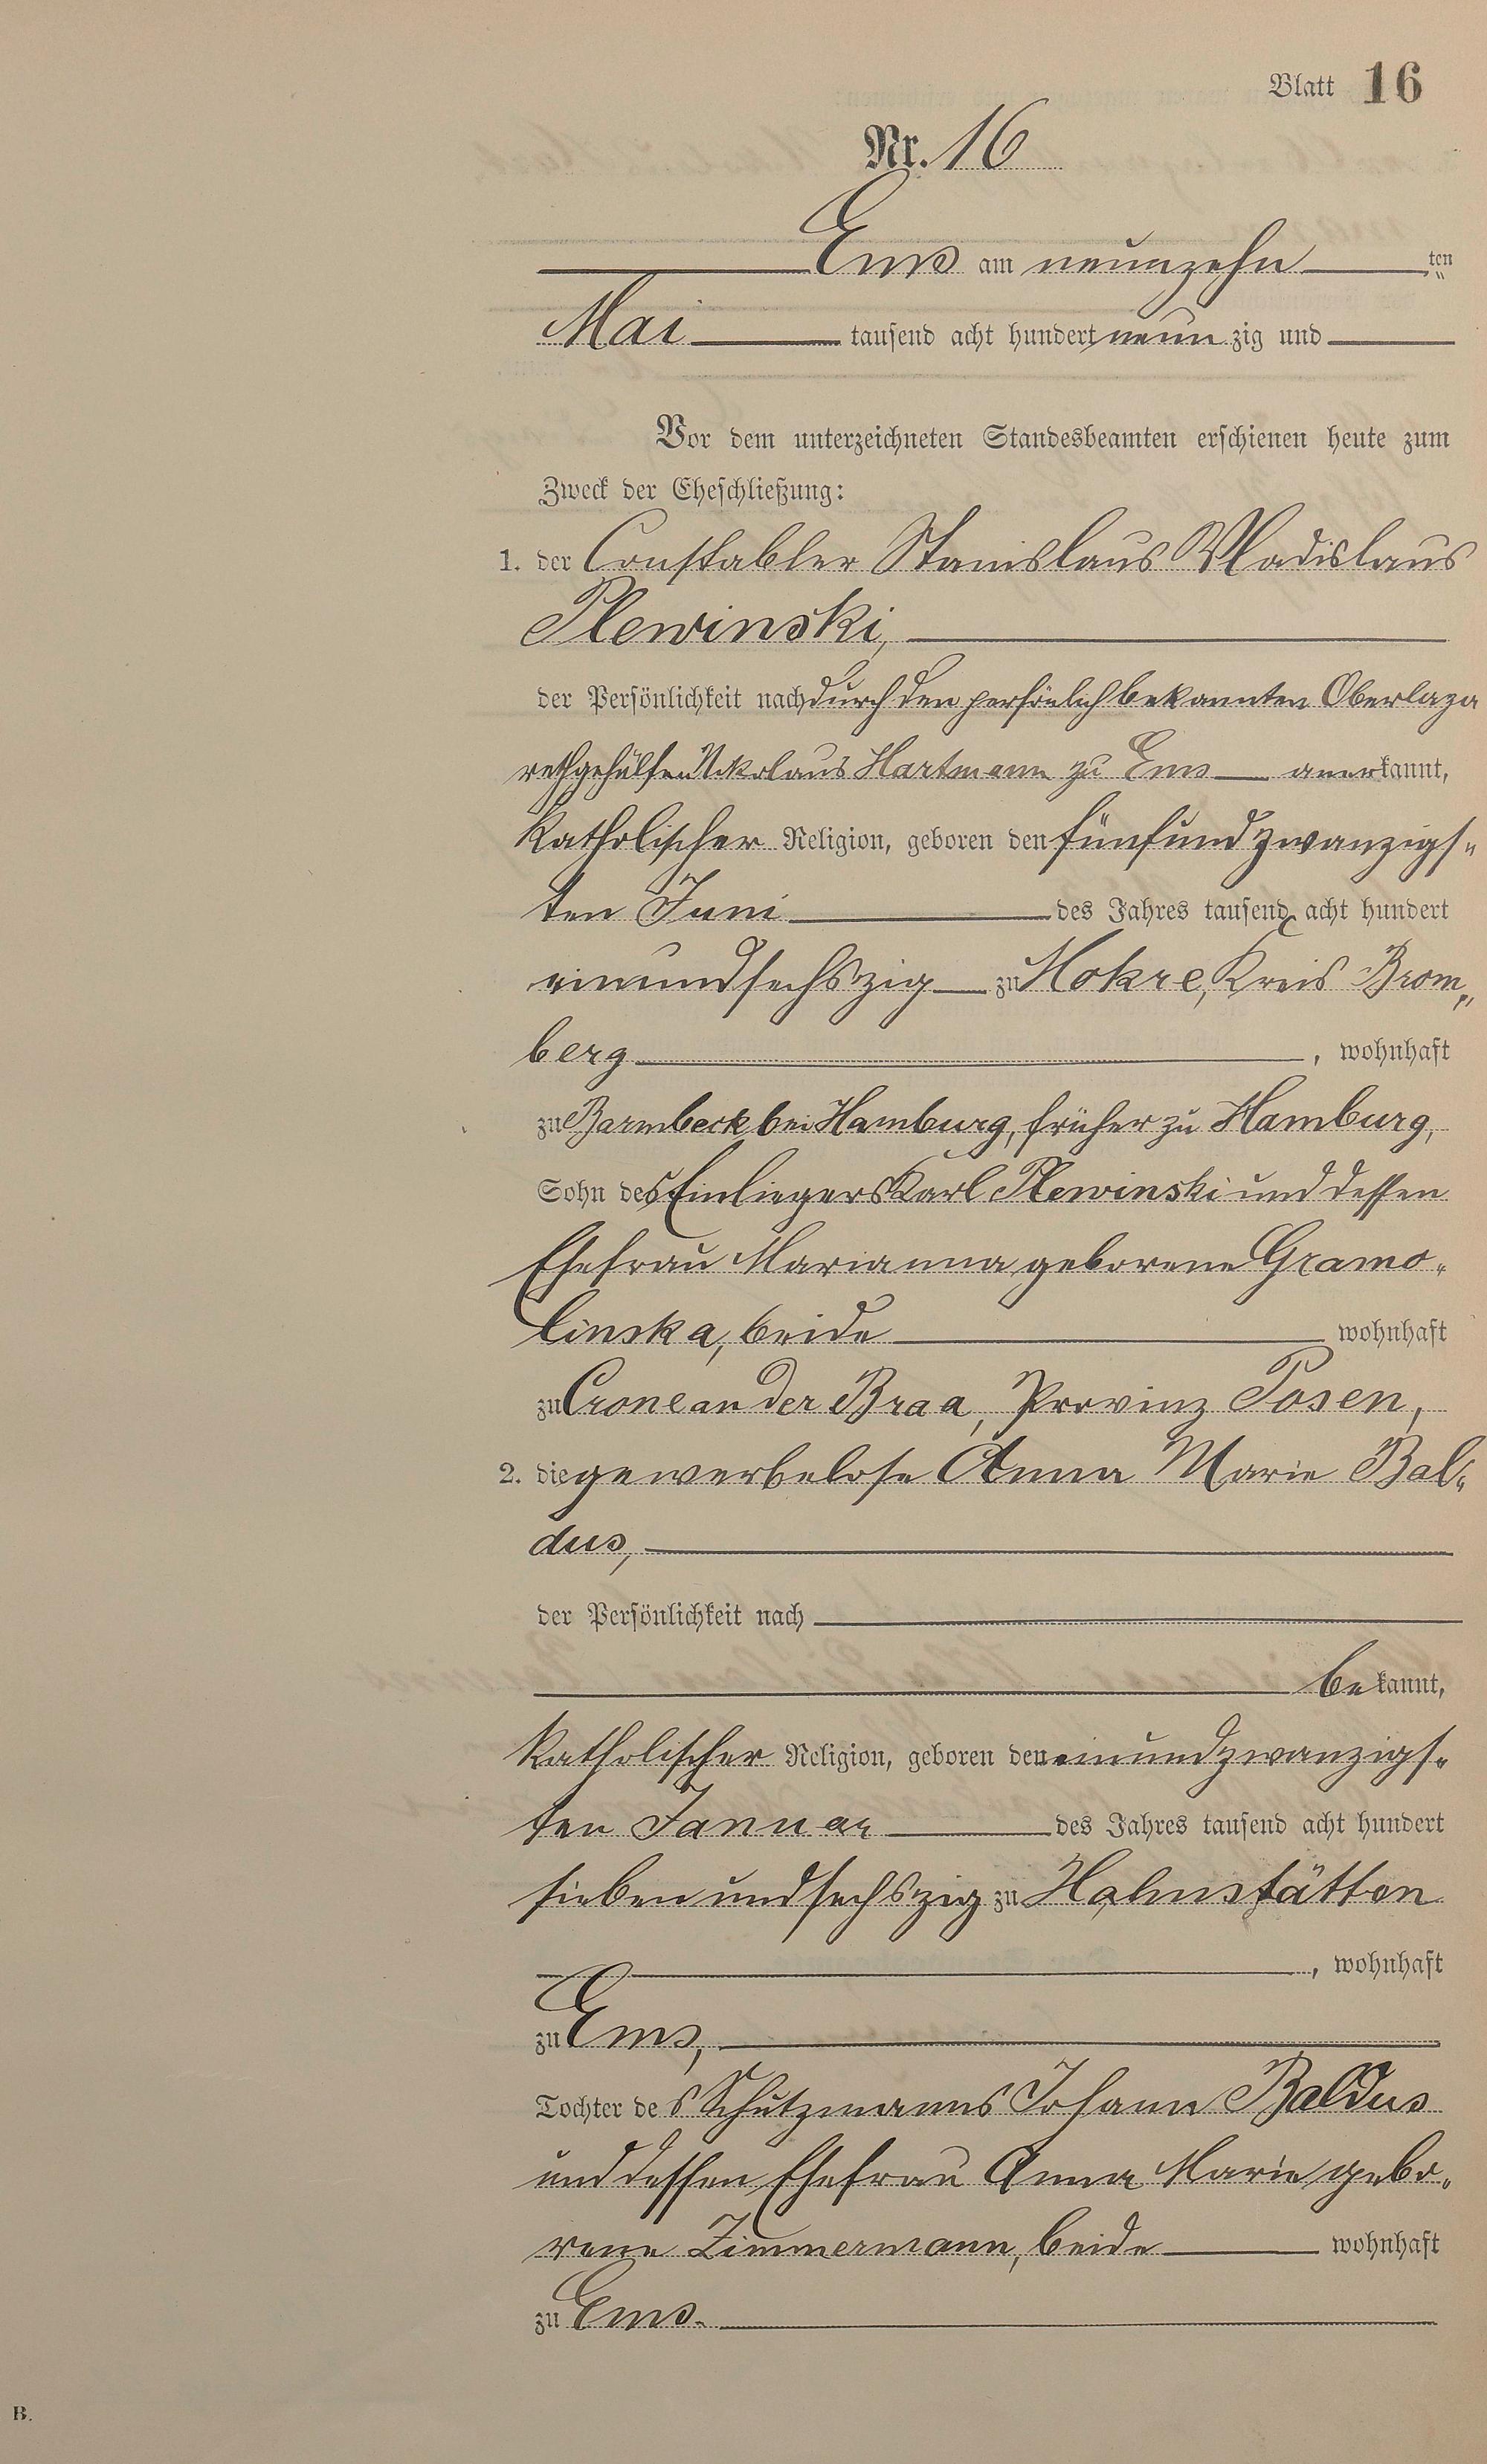 Blatt 16
Nr. 16
Ems am neunzehnten
Mai tausend acht hundert neunzig und
Vor dem unterzeichneten Standesbeamten erschienen heute zum
Zweck der Eheschließung:
1. der Constabler Stanislaus Wladislaus
Plewinski,
der Persönlichkeit nach durch den persönlich bekannten Oberlaza
rethgehülfen Nikolaus Hartmann zu Ems anerkannt,
katholischer Religion, geboren den fünfundzwanzigs-
ten Juni des Jahres tausend acht hundert
einundsechszig zu Mokre, Kreis Brom-
berg, wohnhaft
zu Barmbeck bei Hamburg, früher zu Hamburg,
Sohn des Einliegers Karl Plewinski und dessen
Ehefrau Marianna geborene Gramo-
linska, beide wohnhaft
zu Crone an der Braa, Provinz Posen,
2. die gewerbelose Anna Marie Bal-
dus,
der Persönlichkeit nach
bekannt,
katholischer Religion, geboren den einundzwanzigs-
ten Januar des Jahres tausend acht hundert
siebenundsechszig zu Hahnstätten
, wohnhaft
zu Ems,
Tochter des Schutzmanns Johann Baldus
und dessen Ehefrau Anna Marie gebo-
rene Zimmermann, beide wohnhaft
zu Ems.
B.